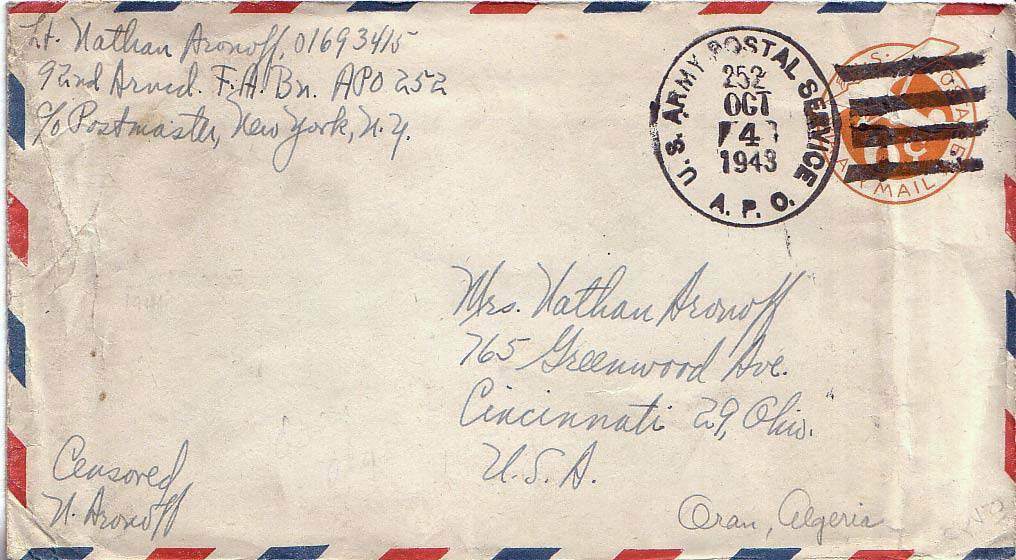 Lt. Nathan Aronoff, 01693415
92nd Armd. F.A. Bn. APO 252
c/o Postmaster, New York, N.Y.
U.S. ARMY POSTAL SERVICE
252
OCT
4
1943
A.P.O.
U.S. POSTAGE
6c
AIR MAIL
Mrs. Nathan Aronoff
765 Greenwood Ave.
Cincinnati 29, Ohio.
U.S.A.
Censored
N. Aronoff
Oran, Algeria